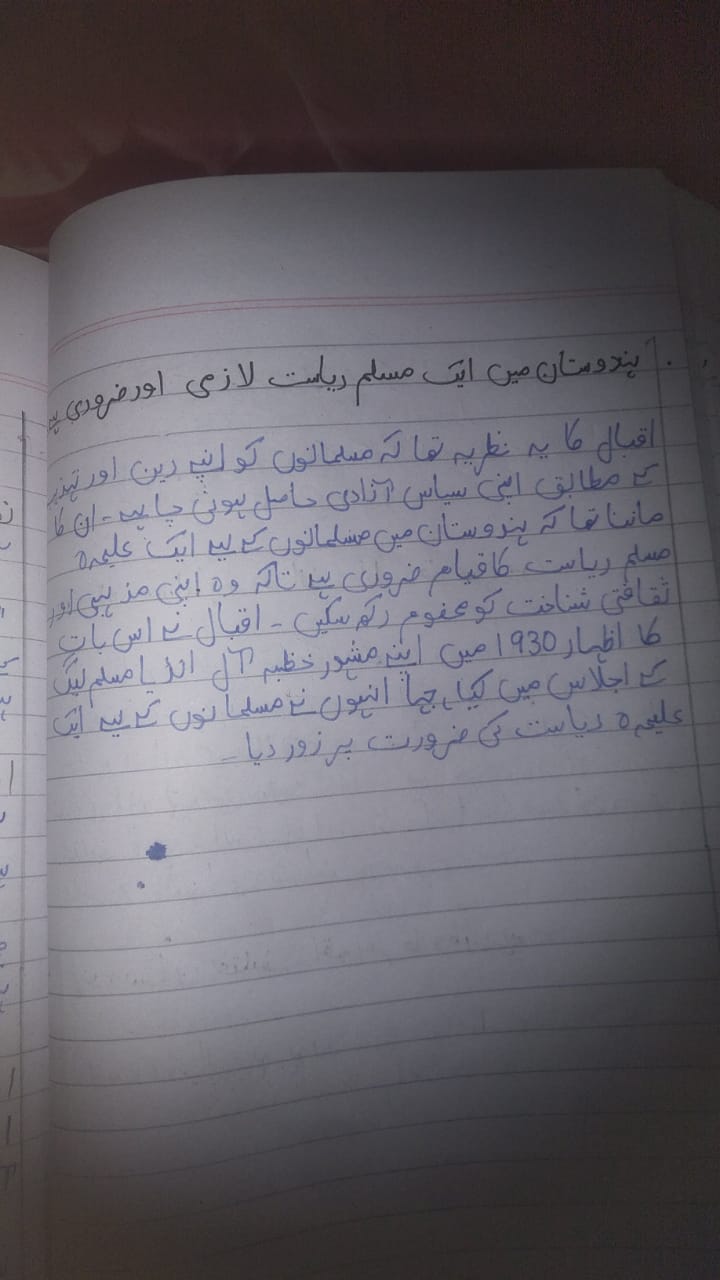 ہندوستان میں ایک مسلم ریاست لازمی اور ضروری ہے
اقبال کا یہ نظریہ تھا کہ مسلمانوں کو اپنے دین اور تہذیب
کے مطابق اپنی سیاسی آزادی حاصل ہونی چاہیے۔ ان کا
ماننا تھا کہ ہندوستان میں مسلمانوں کے لیے ایک علیحدہ
مسلم ریاست کا قیام ضروری ہے تاکہ وہ اپنی مذہبی اور
ثقافتی شناخت کو محفوم رکھ سکیں۔ اقبال نے اس بات
کا اظہار 1930 میں اپنے مشہور خطبہ آل انڈیا مسلم لیگ
کے اجلاس میں کیا، جہاں انہوں نے مسلمانوں کے لیے ایک
علیحدہ ریاست کی ضرورت پر زور دیا۔